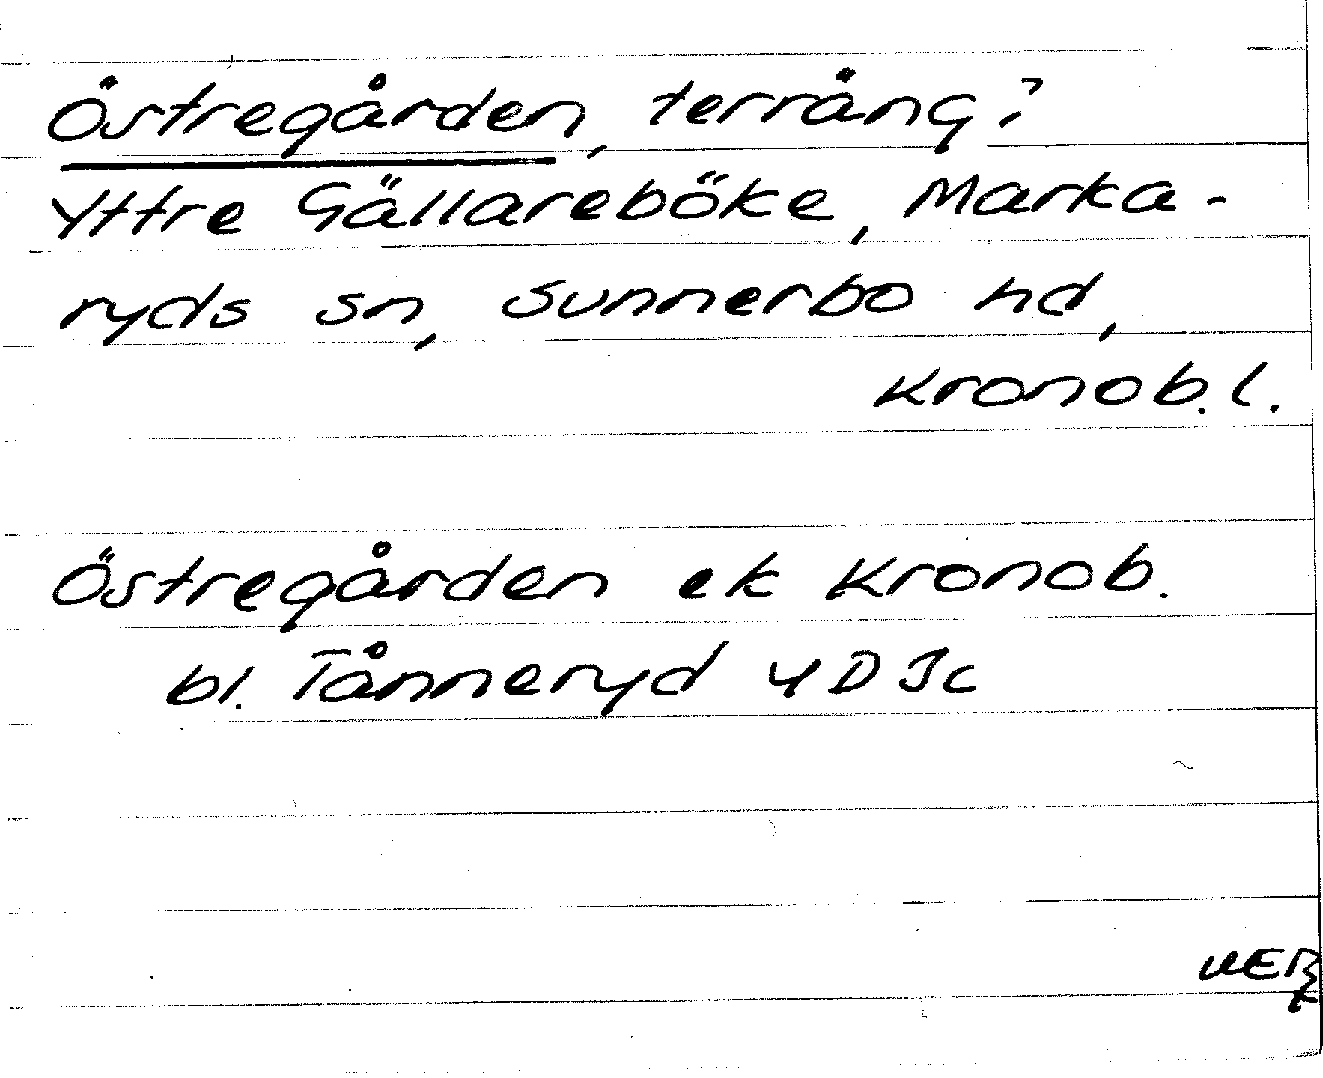 Östregården, terräng?
Yttre Gällareböke, Marka-
ryds sn, Sunnerbo hd,
Kronob. l.
Östregården ek Kronob.
bl. Tånneryd 4D3c